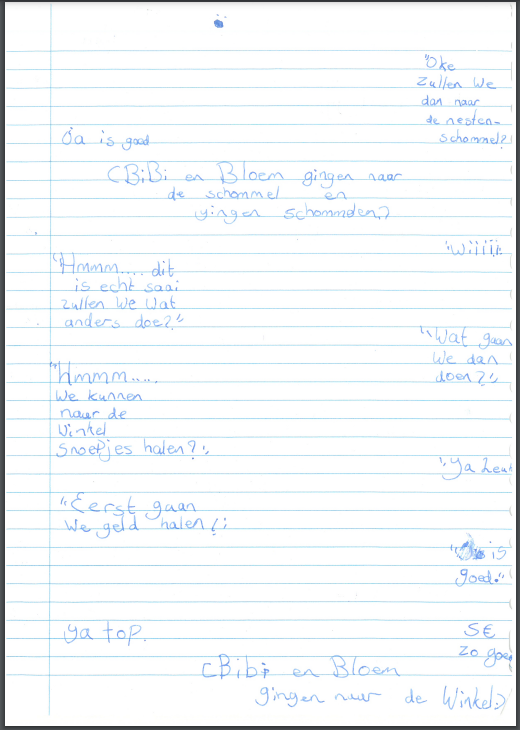 "Oke
zullen we
dan naar
de nesten-
schommel?
Ja is goed
(BiBi en Bloem gingen naar
de schommel en
gingen schommelen)
"wiiiii
"Hmmm.... dit
is echt saai
zullen we wat
anders doe?"
"Wat gaan
we dan
doen?"
"Hmmm.....
we kunnen
naar de
winkel
snoepjes halen?"
"ya leuk
"Eerst gaan
we geld halen!"
is
goed."
ya top.
5€
zo goed
(Bibi en Bloem
gingen naar de winkel.)